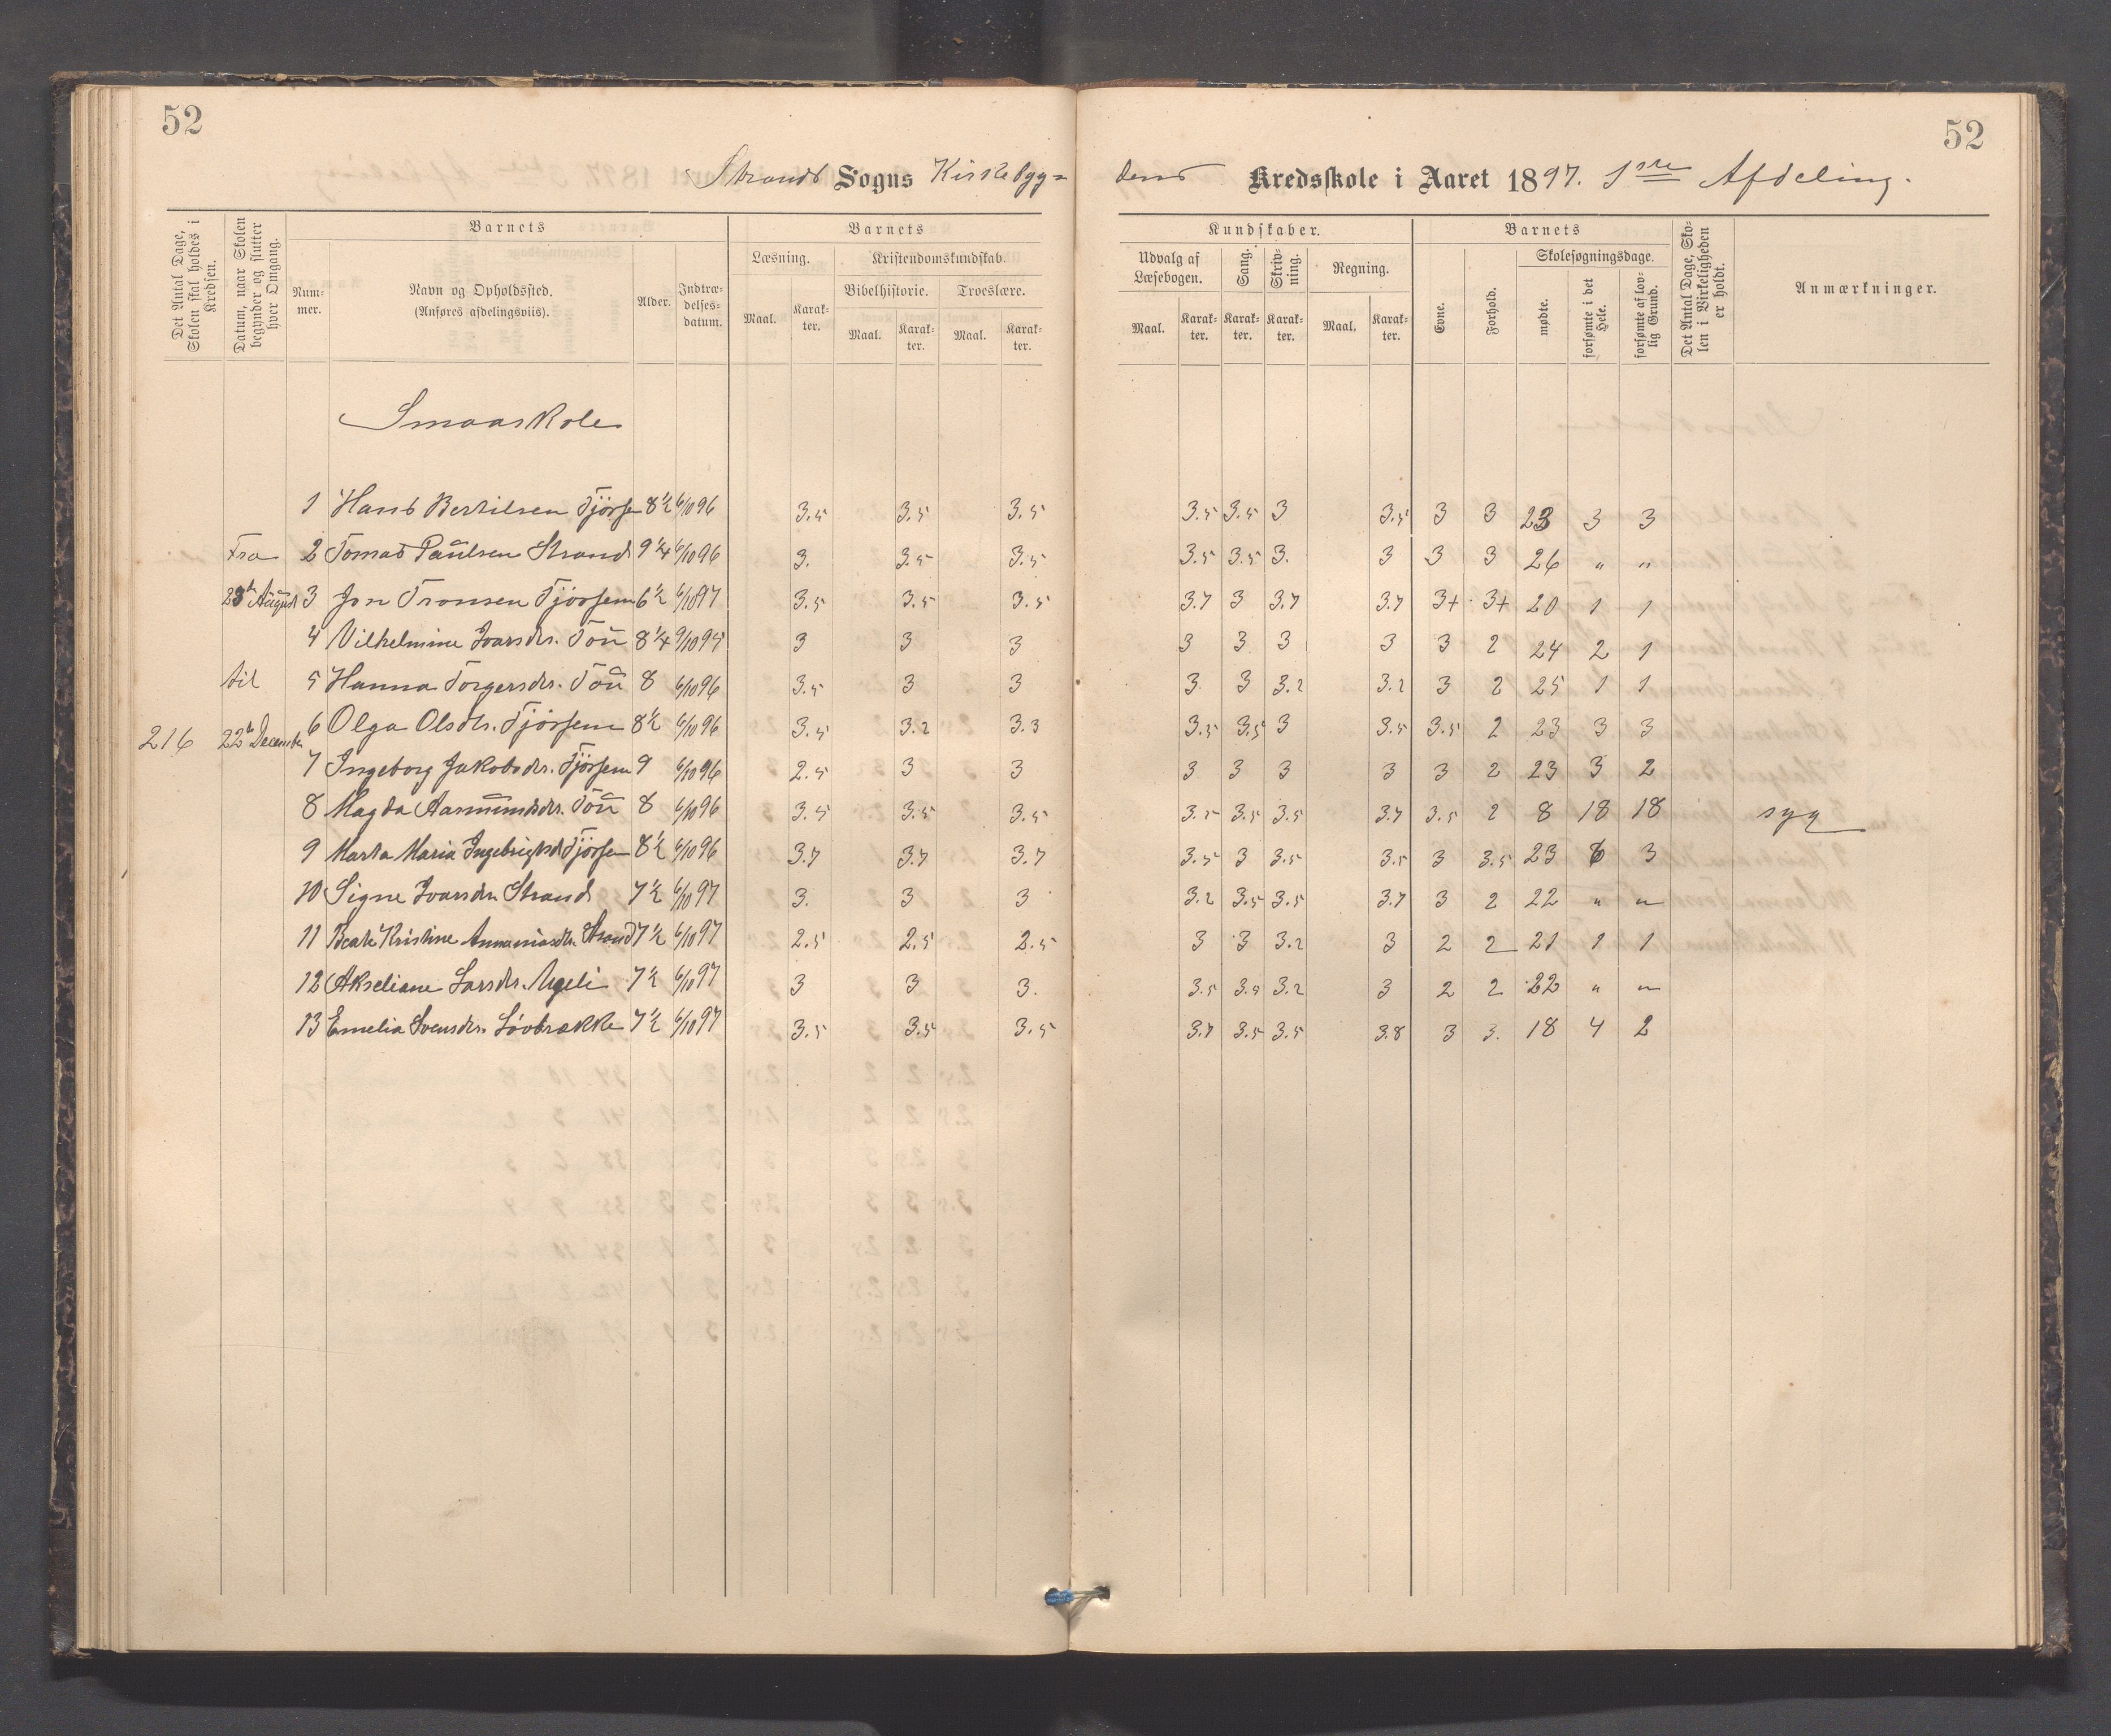 52
52
Strands Sogns Kirkebygdens Kredsskole i Aaret 1897. 1ste Afdeling.
Det Antal Dage, Skolen skal holdes i Kredsen.
Datum, naar Skolen begynder og slutter hver Omgang.
Barnets
Num-mer.
Navn og Opholdssted.
(Anføres afdelingsviis).
Alder.
Indtræ-delses-datum.
Barnets
Læsning.
Maal.
Karak-ter.
Kristendomskundskab.
Bibelhistorie.
Maal.
Karak-ter.
Troeslære.
Maal.
Karak-ter.
Kundskaber.
Udvalg af Læsebogen.
Maal.
Karak-ter.
Sang.
Karak-ter.
Skriv-ning.
Karak-ter.
Regning.
Maal.
Karak-ter.
Barnets
Evne.
Forhold.
Skolesøgningsdage.
mødte.
forsømte i det Hele.
forsømte af lov-lig Grund.
Det Antal Dage, Sko-len i Virkeligheden er holdt.
Anmærkninger.
Smaaskole
1 Hans Bertilsen Tjörsem 8½ 6/10 96 3.5 3.5 3.5 3.5 3.5 3 3.5 3 3 23 3 3
Fra 2 Tomas Paulsen Strand 9¼ 6/10 96 3. 3.5 3.5 3.5 3.5 3. 3 3 3 26 " "
23de August 3 Jon Tronsen Tjörsem 6½ 6/10 97 3.5 3.5 3.5 3.7 3 3.7 3.7 3+ 3+ 20 1 1
4 Vilhelmine Ivarsdtr. Tou 8¼ 9/10 95 3 3 3 3 3 3 3 3 2 24 2 1
til 5 Hanna Torgersdtr. Tou 8 6/10 96 3.5 3 3 3 3 3.2 3.2 3 2 25 1 1
216 22de December 6 Olga Olsdtr. Tjörsem 8½ 6/10 96 3.5 3.2 3.3 3.5 3.5 3 3.5 3.5 2 23 3 3
7 Ingeborg Jakobsdtr. Tjörsem 9 6/10 96 2.5 3 3 3 3 3 3 3 2 23 3 2
8 Magda Aasmundsdtr. Tou 8 6/10 96 3.5 3.5 3.5 3.5 3.5 3.5 3.7 3.5 2 8 18 18 syg
9 Marta Maria Ingebrigtsd. Tjörsem 8½ 6/10 96 3.7 3.7 3.7 3.5 3 3.5 3.5 3 3.5 23 6 3
10 Signe Ivarsdtr. Strand 7½ 6/10 97 3. 3 3 3.2 3.5 3.5 3.7 3 2 22 " "
11 Beate Kristine Annaniasdtr. Strand 7½ 6/10 97 2.5 2.5 2.5 3 3 3.2 3 2 2 21 1 1
12 Akseliane Larsdtr. 7½ 6/10 97 3 3 3. 3.5 3.5 3.2 3 2 2 22 " "
13 Emelia Svensdtr. Løvbrække 7½ 6/10 97 3.5 3.5 3.5 3.7 3.5 3.5 3.8 3 3. 18 4 2